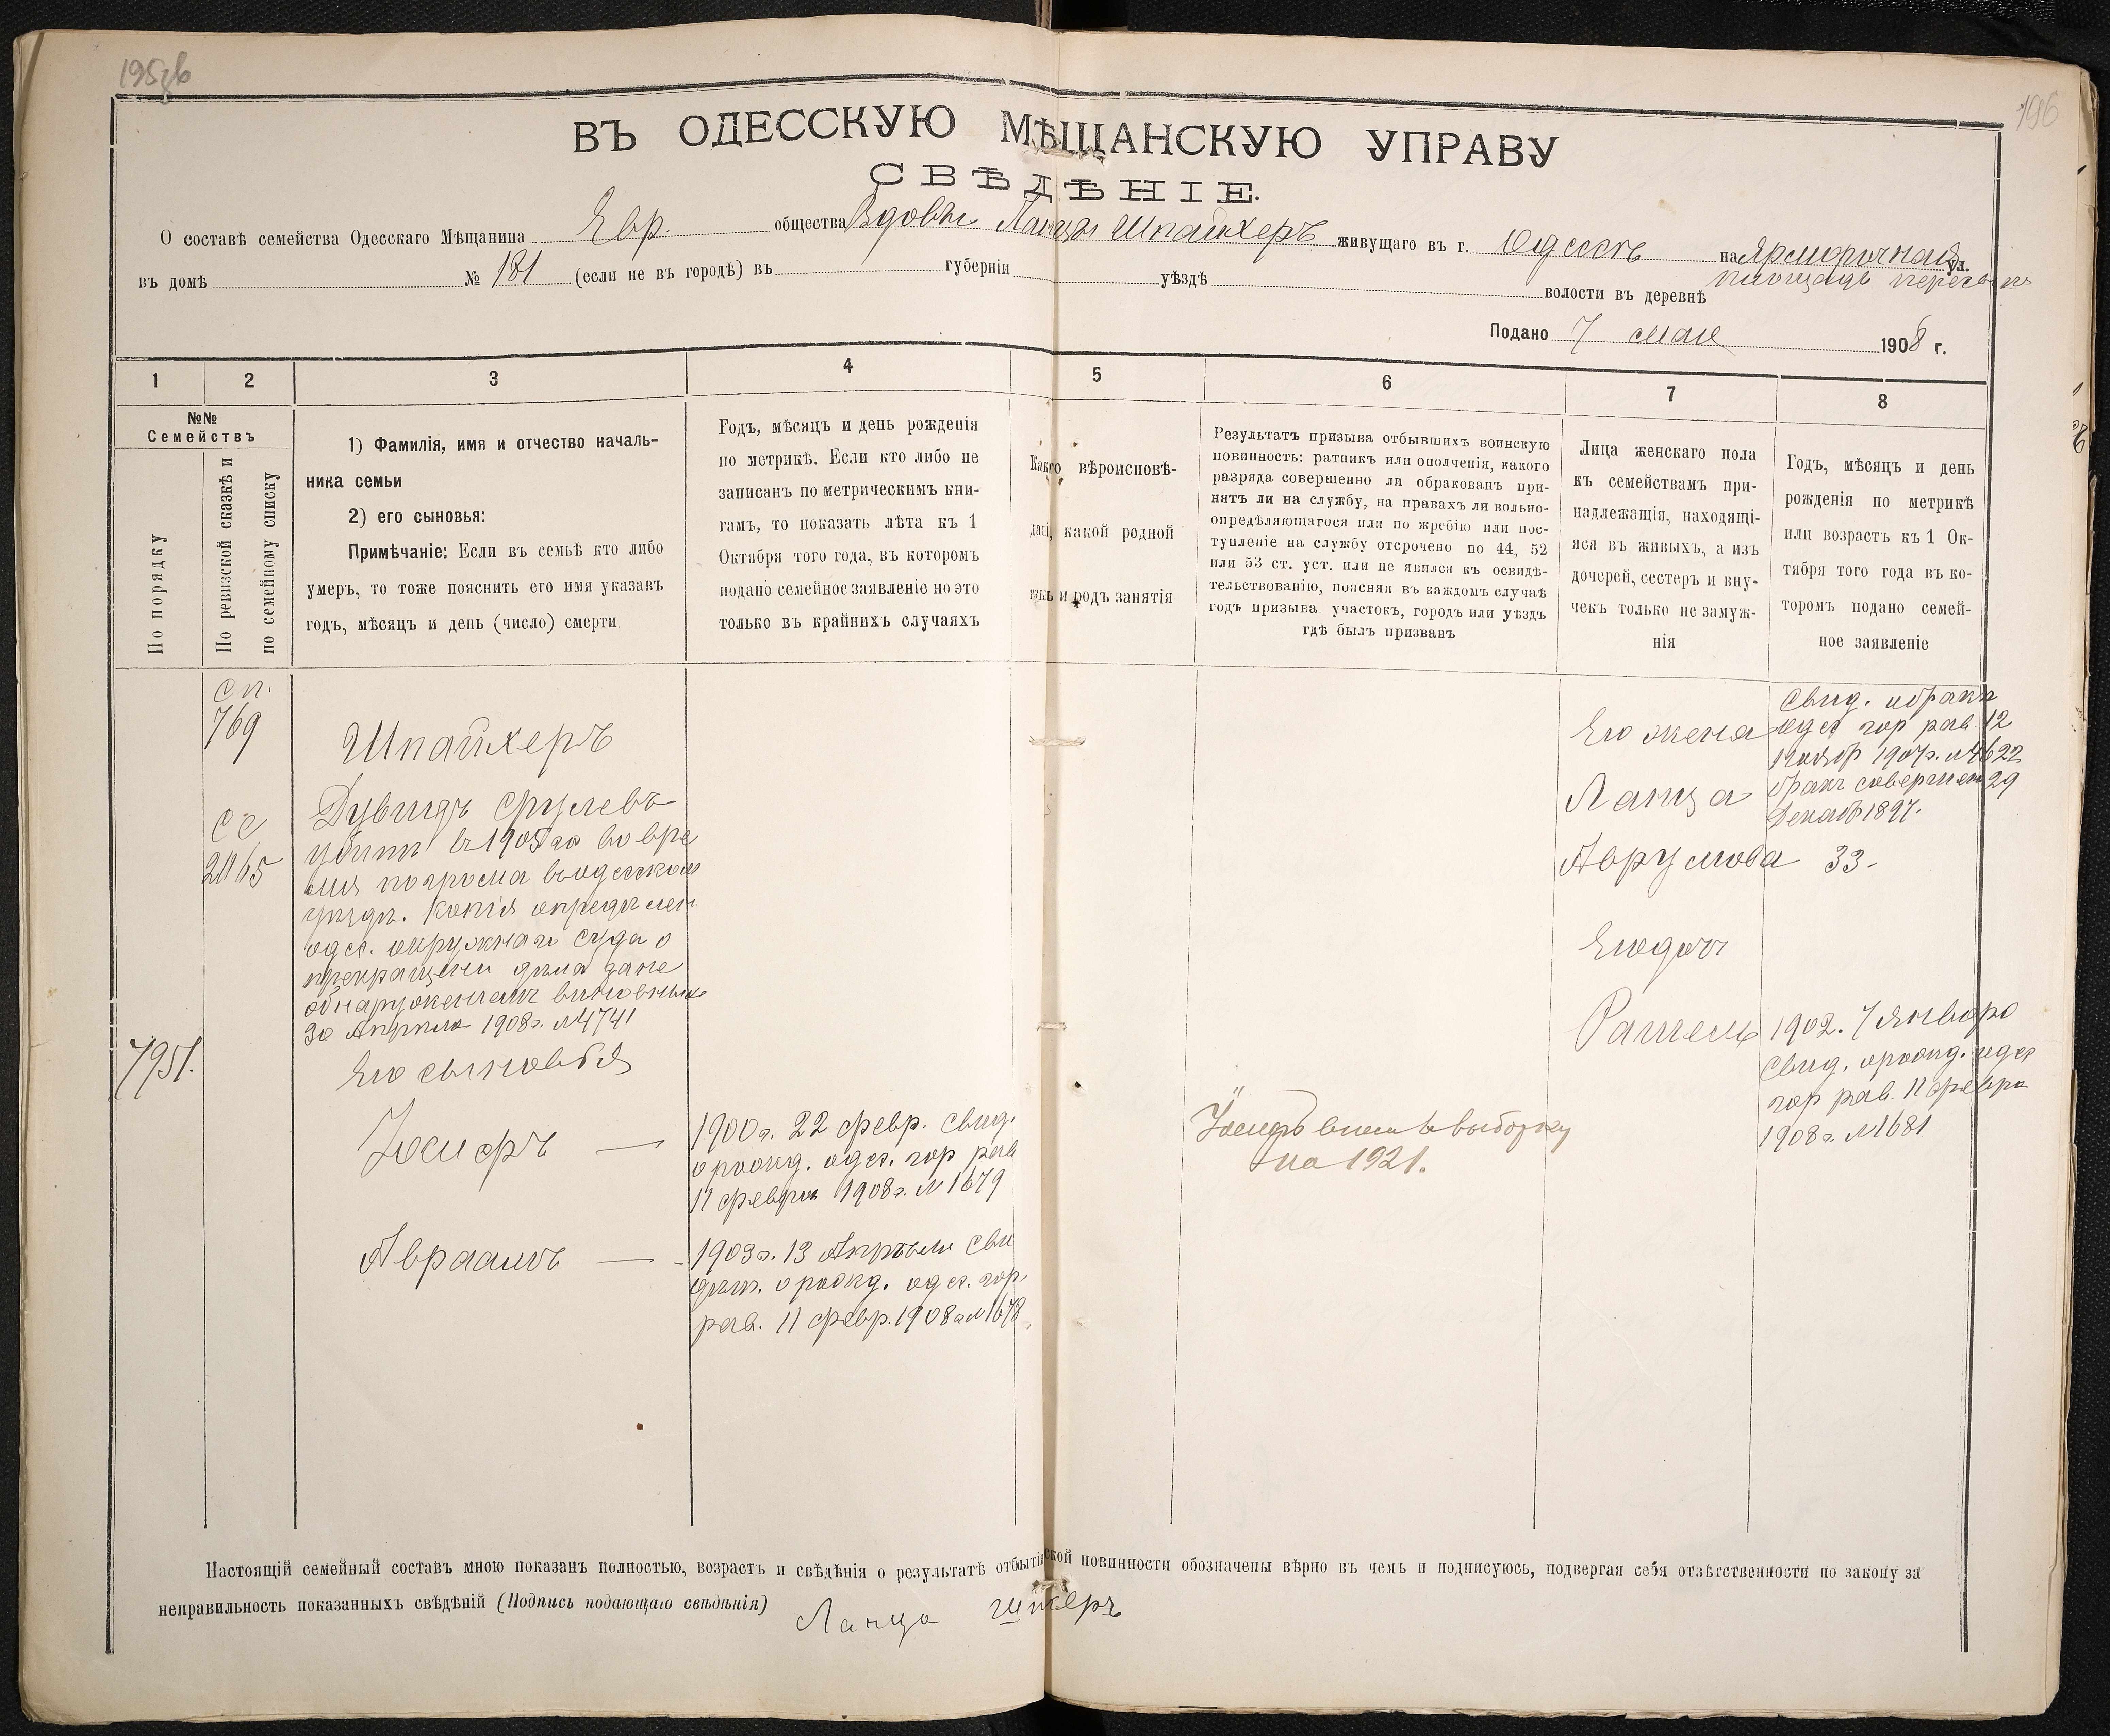 195зв
196
ВЪ ОДЕССКУЮ МѢЩАНСКУЮ УПРАВУ
СВѢДѢНІЕ.
О составѣ семейства Одесскаго Мѣщанина Евр. общества Вдовы Ланца Шпайхеръ живущаго въ г. Одессѣ на Ярморочная ул.
площадь пересыпь
въ домѣ № 181 (если не въ городѣ) въ губерніи уѣздѣ волости въ деревнѣ
Подано 7 мая 1908 г.
1 2 3 4 5 6 7 8
№№
Семействъ
По порядку
По ревизской сказкѣ и
по семейному списку
1) Фамилія, имя и отчество началь-
ника семьи
2) его сыновья:
Примѣчаніе: Если въ семьѣ кто либо
умеръ, то тоже пояснить его имя указавъ
годъ, мѣсяцъ и день (число) смерти
Годъ, мѣсяцъ и день рожденія
по метрикѣ. Если кто либо не
записанъ по метрическимъ кни-
гамъ, то показать лѣта къ 1
Октября того года, въ которомъ
подано семейное заявленіе но это
только въ крайнихъ случаяхъ
Какого вѣроисповѣ-
данія, какой родной
языкъ и родъ занятія
Результатъ призыва отбывшихъ воинскую
повинность: ратникъ или ополченія, какого
разряда совершенно ли обракованъ при-
нятъ ли на службу, на правахъ ли вольно-
опредѣляющагося или по жребію или пос-
тупленіе на службу отсрочено по 44, 52
или 53 ст. уст. или не явился къ освидѣ-
тельствованію, поясняя въ каждомъ случаѣ
годъ призыва участокъ, городъ или уѣздъ
гдѣ былъ призванъ
Лица женскаго пола
къ семействамъ при-
надлежащія, находящі-
яся въ живыхъ, а изъ
дочерей, сестеръ и вну-
чекъ только не замуж-
нія
Годъ, мѣсяцъ и день
рожденія по метрикѣ
или возрастъ къ 1 Ок-
тября того года въ ко-
торомъ подано семей-
ное заявленіе
сп.
769
сс
2465
7951.
Шпайхеръ
Дувидъ Срулевъ
убитъ въ 1905 го во вре
мя погрома въ одесском
уѣздѣ. Копія опредѣлен
одес. окружнаго суда о
прекращени дѣла зане
обнаружениемъ виновных
30 Апрѣля 1908г. №4741
Его сыновья
Іосифъ —
1900г. 22 февр. Свид.
о рожд. одес. гор рав
11 февра 1908г. №1679
Авраамъ —
1903г. 13 Апрѣля Сви
дѣт. о рожд. одес. гор.
рав. 11 февр. 1908г №1678
Іосифъ внесен въ выборку
на 1921.
Его жена
Ланца
Аврумова
33-
Свид. о брака
одес гор рав 12
Ноябр 1907г. №4622
бракъ совершен 29
Декаб 1897.
Его дочь
Рашель
1902. 7 Январа
Свид. о рожд. одес
гор рав. 11 февра
1908г №1681
Настоящій семейный составъ мною показанъ полностью, возрастъ и свѣдѣнія о результатѣ отбытія ской повинности обозначены вѣрно въ чемъ и подписуюсь, подвергая себя отвѣтственности по закону за
неправильность показанныхъ свѣдѣній (Подпись подающаго свѣдѣнія) Ланца